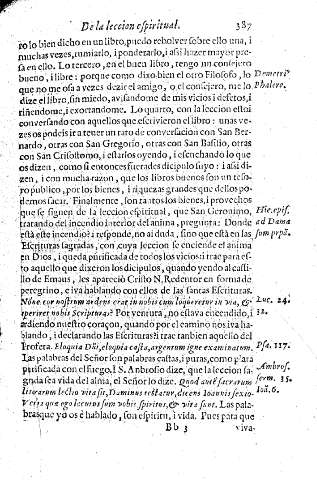 De la leccion espiritual. 387
ro lo bien dicho en un libro, puedo rebolver sobre ello una, i
muchas vezes, rumiarlo, i ponderarlo, i assi hazer mayor pre-
sa en ello. Lo tercero, en el buen libro, tengo un consejero
bueno, i libre: porque como dixo bien el otro Filosofo, lo Demetri⁹
que no me osa a vezes dezir el amigo, o el consejero, me lo Phalere.
dize el libro, sin miedo, avisandome de mis vicios i defetos, i
riñendome, i exortandome. Lo quarto, con la leccion estoi
conversando con aquellos que escrivieron el libro: unas ve-
zes os podeis ir a tener un rato de conversacion con San Ber-
nardo, otras con San Gregorio, otras con San Basilio, otras
con San Crisostomo, i estarlos oyendo, i escuchando lo que
os dizen, como si entonces fuerades dicipulo suyo: i assi dizen,
i con mucha razon, que los libros buenos son un teso-
ro publico, por los bienes, i riquezas grandes que dellos po-
demos sacar. Finalmente, son tantos los bienes, i provechos
que se siguen de la leccion espiritual, que San Geronimo, Hie. epis.
tratando del incendio interior del anima, pregunta: Donde ad Dama
està este incendio? i responde, no ai duda, sino es està en las sum pãpã.
Escrituras sagradas, con cuya leccion se enciende el anima
en Dios, i queda purificada de todos los vicios: i trae para es-
to aquello que dixeron los dicipulos, quando yendo al casti-
llo de Emaus, les aparecio Cristo N. Redentor en forma de
peregrino, e iva hablando con ellos de las santas Escrituras.
Nõne cor nostrum ardens erat in nobis cum loqueretur in via, & Luc. 24.
aperiret nobis Scripturas? Por ventura, no estava encendido, i 32.
ardiendo nuestro coraçon, quando por el camino nos iva ha-
blando, i declarando las Escrituras? i trae tambien aquello del
Profeta. Eloquia Dñi, eloquia casta, argentum igne examinatum. Psa. 117.
Las palabras del Señor son palabras castas, i puras, como plata
purificada con el fuego. I S. Ambrosio dize, que la leccion sa- Ambros.
grada sea vida del alma, el Señor lo dize. Quod autẽ sacrarum serm. 35.
literarum lectio vita sit, Dominus testatur, dicens Ioannis sexto. Ioã. 6.
Verba quæ ego locutus sum vobis spiritus, & vita sunt. Las pala-
bras que yo os è hablado, son espiritu, i vida. Pues para que
Bb 3 viva-